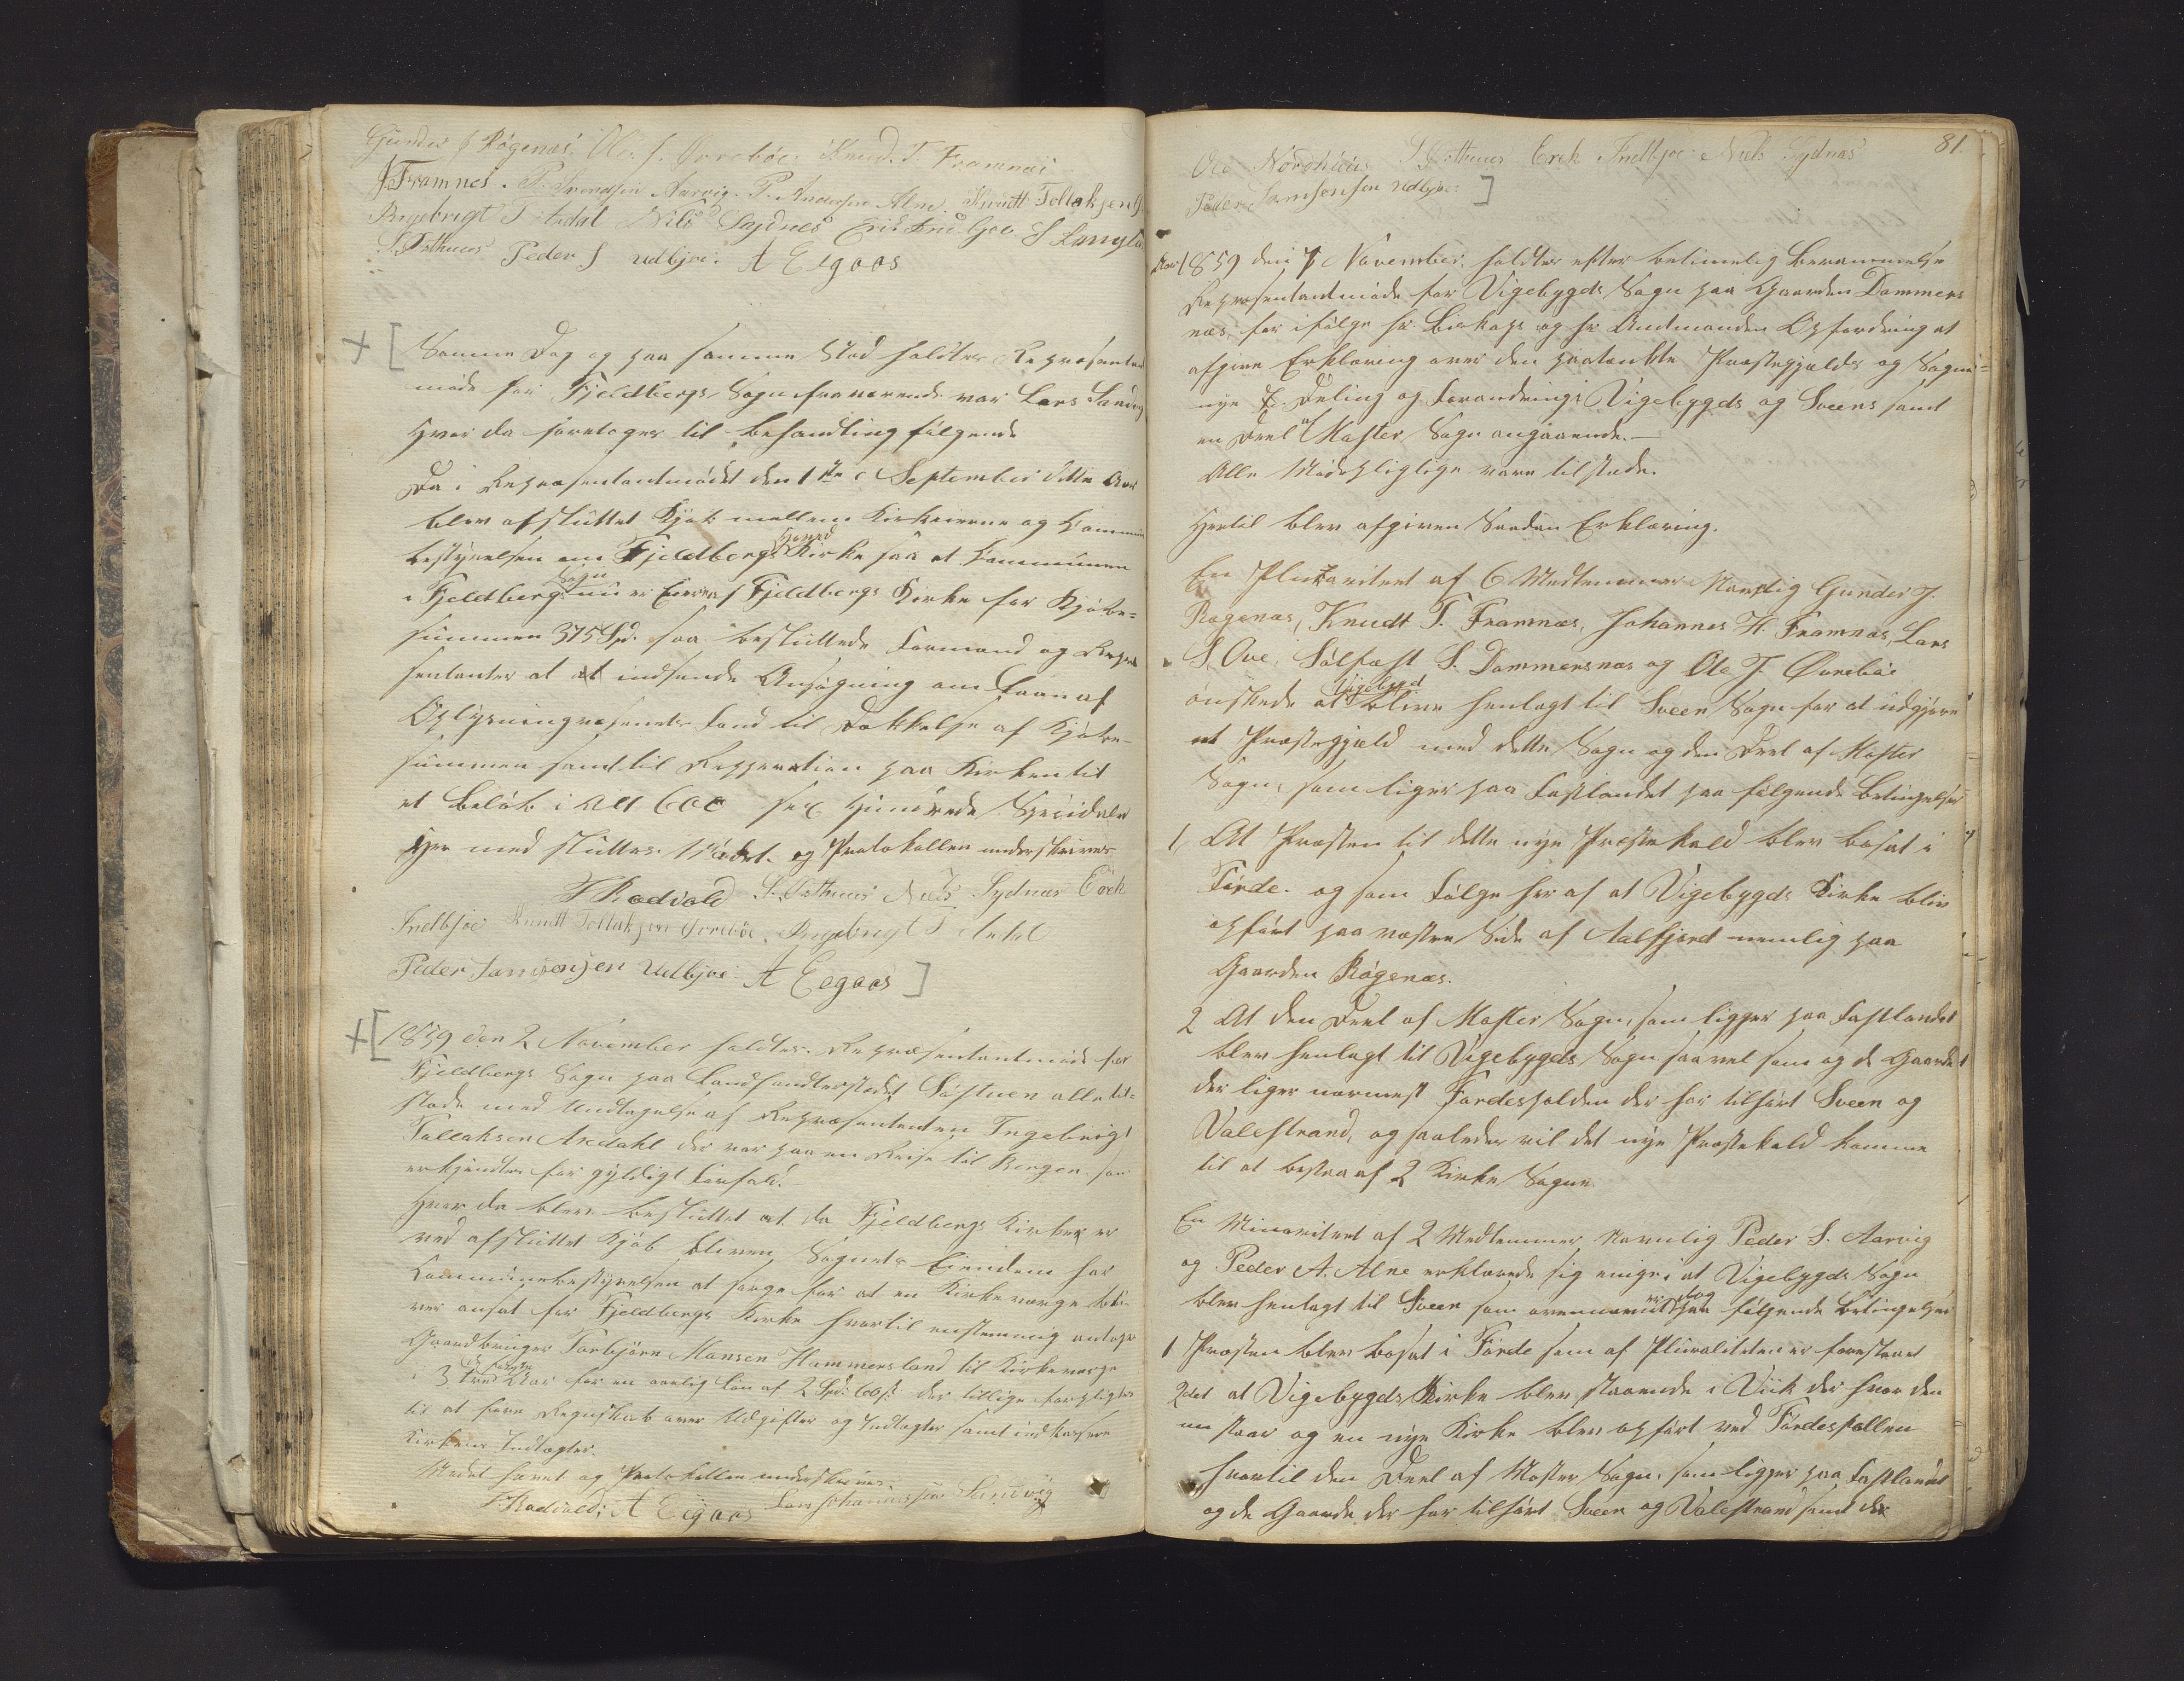 Gunder J Røgenæs. Ole. J. Øvrebøe. Knud. T. Framnæs
J Framnes. P. Svendsen Aarvig. P. Andersen Alne. Knudt Tollakjens
Ingebrigt T Axdal Nils Sydnes Erik Indbjoe S
S. Østhuus Peder S udbjoe. A Eegaas
Samme Dag og paa samme Sted holdtes Repræsentant
møde for Fjeldbergs Sogn fraværende var Lars Sandvig
Hvor da foretoges til Behandling følgende
Da i Repræsentantmødet den 1ste September dette Aar
blev afsluttet Kjøb mellem Kirkeeierne og Kommune
bestyrelsen om Fjeldbergs Hoved Kirke saa at Kommunen
i Fjeldberg Sogn nu er Eiere af Fjeldbergs Kirke for Kjøbe-
summen 375 Spd. saa besluttede Formænd og Repræ
sentanter at indsende Ansøgning om Laan af
Oplysningvæsenets Fond til Dækkelse af Kjøbe-
summen samt til Repperation paa Kirken til
et Beløb i alt 600 sex Hundrede Speсidaler
Her med sluttes Mødet og Protokollen underskrives
T Rødvold S. Østhuus Niels Sydnæs Erik
Indbjoe Knudt Tollakjsen Øvrebøe. Ingebrigt T Axdal
Peder Samsonsen Udbjoe. A Eegaas
1859 den 2 November holdtes Repræsentantmøde for
Fjeldbergs Sogn paa Landhandlerstedet Søstuen alle til-
stede med Undtagelse af Repræsentenden Ingebrigt
Tollaksen Axdahl der var paa en Reise til Bergen, som
erkjendtes for gyldigt Forfald.
Hvor da blev besluttet at da Fjeldbergs Kirke er
ved afsluttet Kjøb bleven Sognets Eiendom har
Kommunebestyrelsen at sørge for at en Kirkeværge bli-
ver ansat for Fjeldbergs Kirke hvortil enstemmig antoges
Gaardbruger Torbjørn Monsen Hammersland til Kirkeværge
i 3 tre Aar for en aarlig Løn af 2 Spd. 60 s der tillige forpligtes
til at føre Regnskab over Udgifter og Indtægter samt indkassere
Kirkens Indtægter.
Mødet hævet og Protokollen underskreves.
T. Rødvold; A Eegaas Lars Johannessen Sandvig
81.
Ole Nordhuus S Østhuus Erek Indbjoe Niels Sydnæs
Peder Samsonsen udbjoe.
Aar 1859 den 7 November holdtes efter betimelig Berammelse
Repræsentantmøde for Vigebygds Sogn paa Gaarden Dommers
næs, for ifølge Hr. Biskops og Hr. Amtmandens Opfordring at
afgive Erklæring over den paatænkte Præstegjelds og Sogne-
nye Deling og Forandring i Vigebygds og Sveens samt
en Deel af Moster Sogn angaaende.—
Alle Mødepligtige vare tilstede.
Hertil blev afgiven Saadan Erklæring.
En Pluraritet af 6 Medlemmer Navnlig Gunder J.
Røgenæs, Knudt T. Framnæs, Johannes H. Framnæs, Lars
S. Ove, Sålfæst S. Dommersnæs og Ole J. Øvrebøe
ønskede at Vigebygd bliver henlagt til Sveen Sogn for at udgjøre
et Præstegjæld med dette Sogn og den Deel af Moster
Sogn, som liger paa Fastlandet paa følgende Betingelser
1, At Præsten til dette nye Præstekald blev bosat i
Førde. og som Følge her af at Vigebygds Kirke bliv
opført paa vestre Side af Aalfjord nemlig paa
Gaarden Røgenæs.
2 At den Deel af Moster Sogn, som ligger paa Fastlandet
blev henlagt til Vigebygds Sogn saavel som og de Gaarde
der liger nærmest Førdespolden der har tilhørt Sveen og
Valestrand, og saaledes vil det nye Præstekald komme
til at bestaa af 2 Kirke Sogne.
En Minoritet af 2 Medlemmer Navnlig Peder S. Aarvig
og Peder A. Alne erklærede sig enige i at Vigebygds Sogn
blev henlagt til Sveen som ovennævnt dog paa følgende Betingelser
1 Præsten blev bosat i Førde som af Pluraliteten er forestaaet
2det at Vigebygds Kirke blev staaende i Viik der hvor den
nu staar og en nye Kirke blev opført ved Førdespollen
hvortil den Deel af Moster Sogn, som ligger paa Fastlandet
og de Gaarde der har tilhørt Sveen og Valestrand samt der